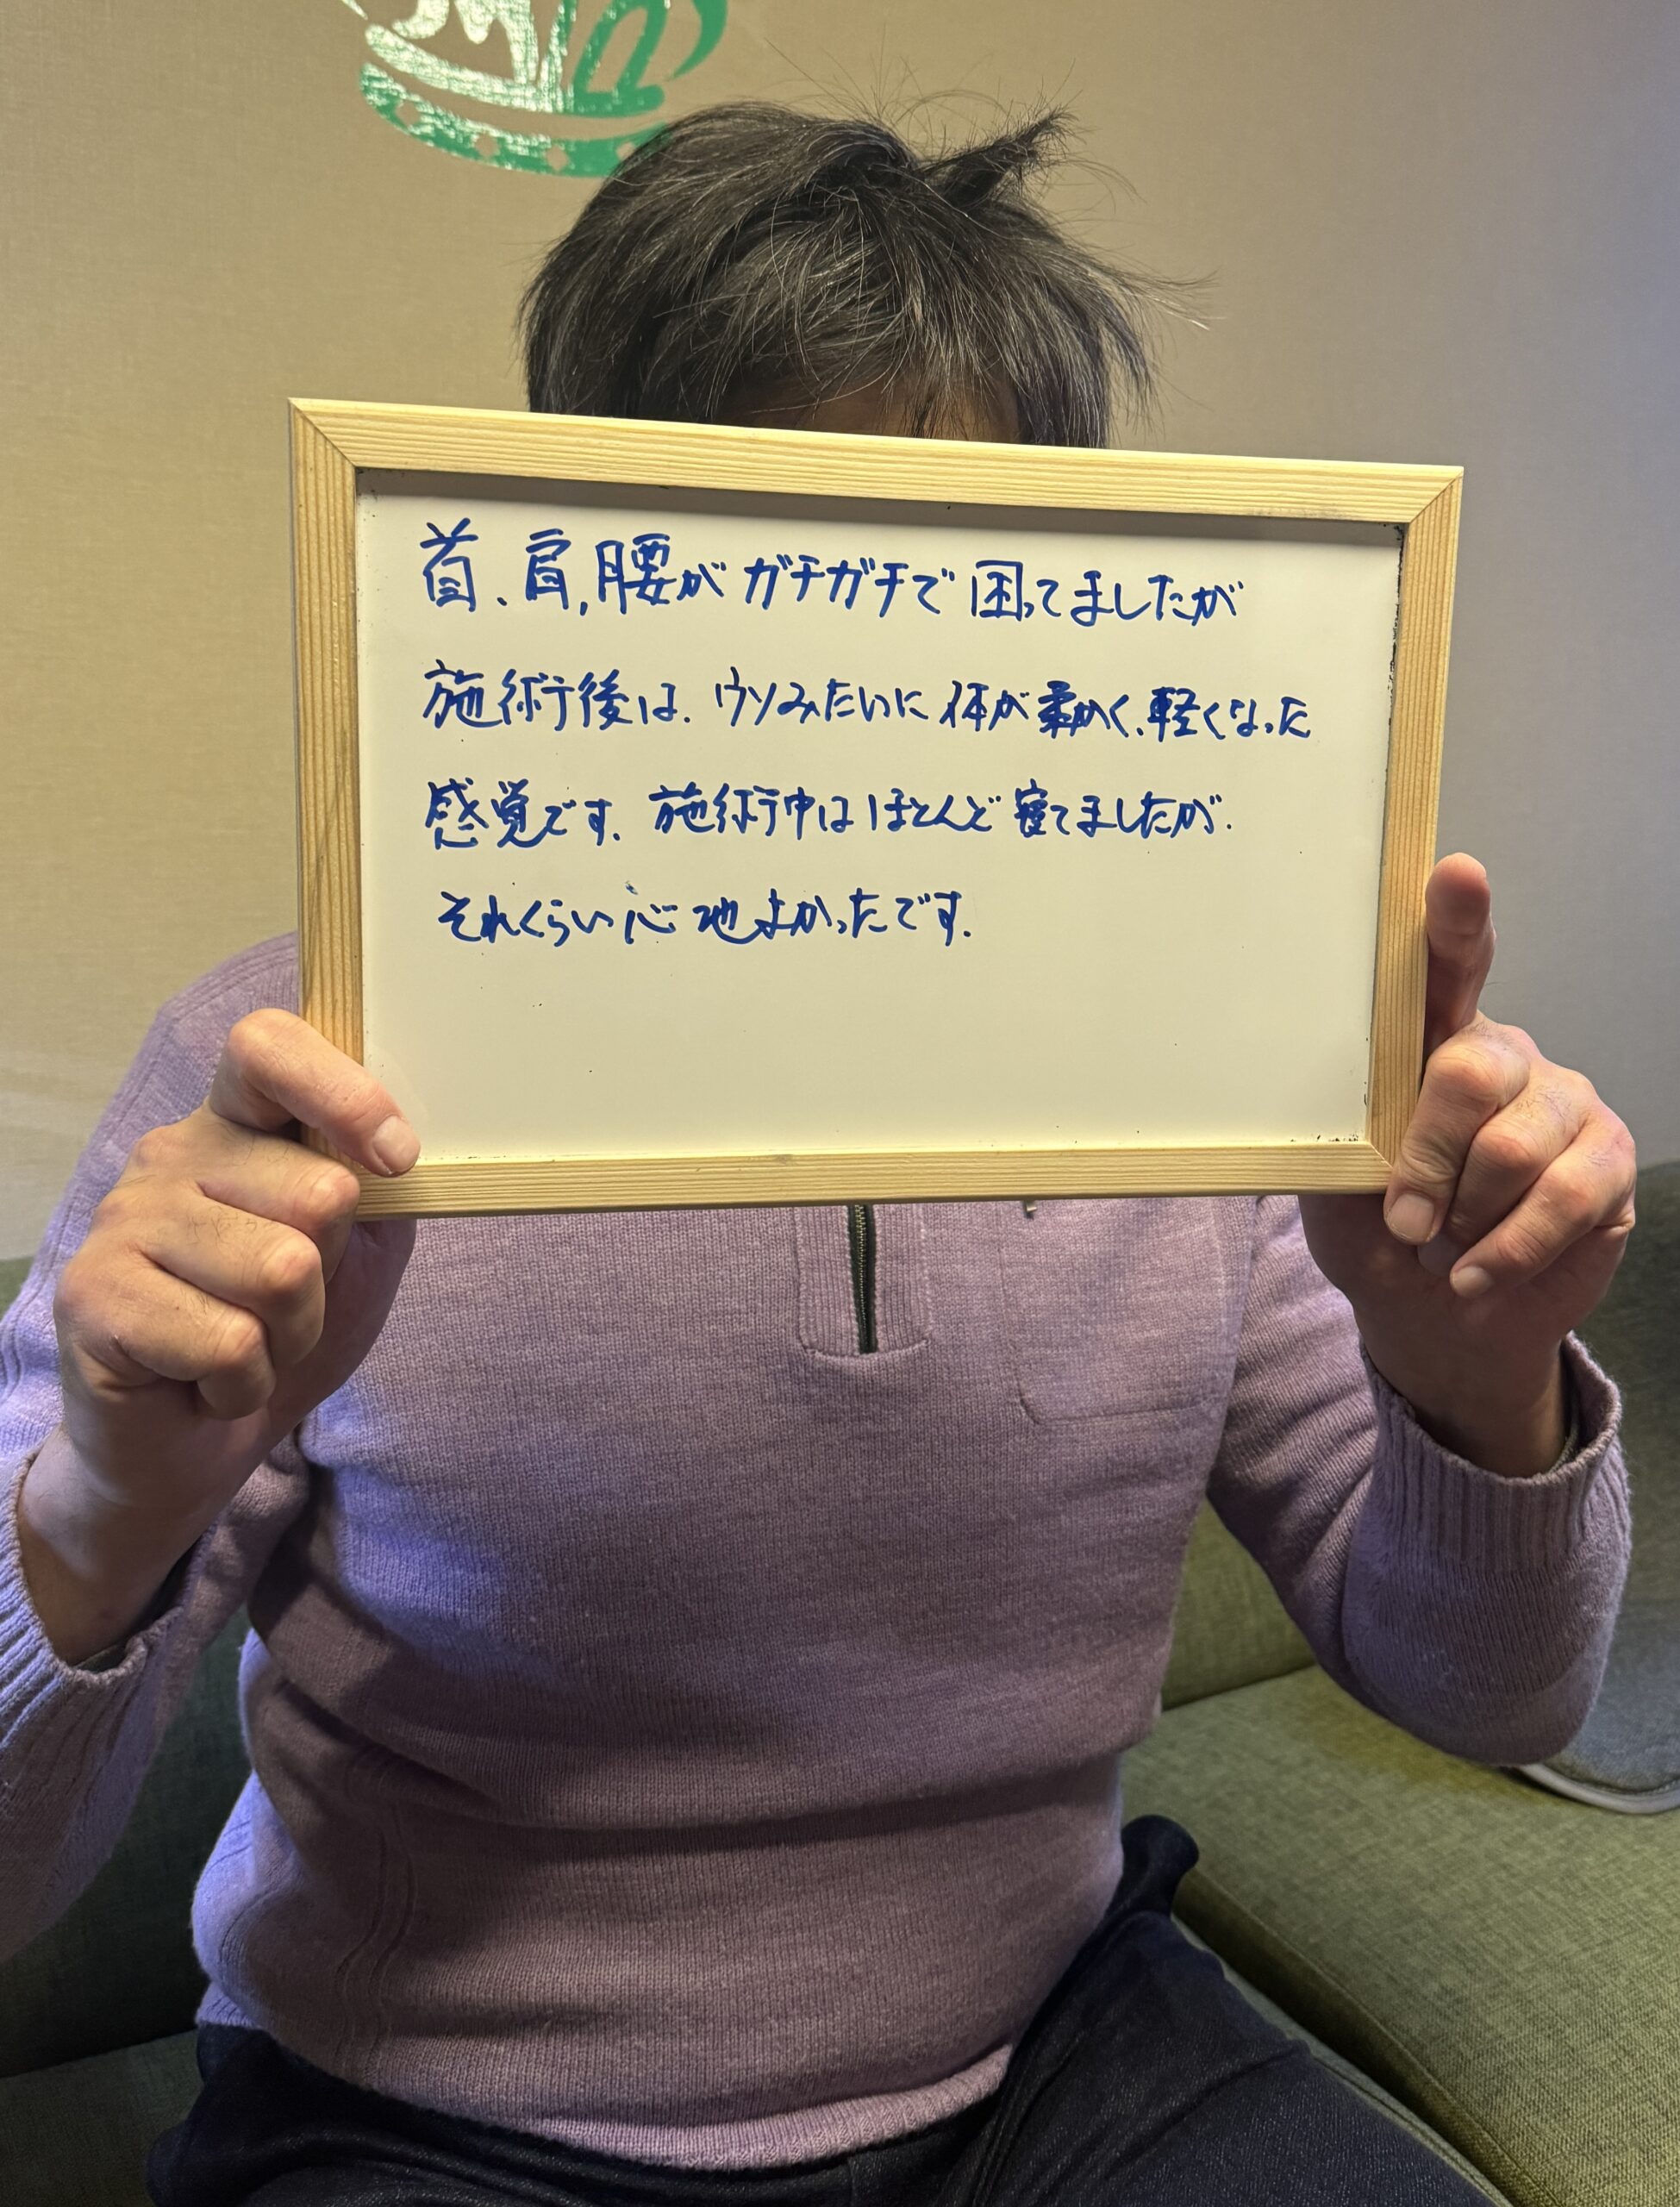 首、肩,腰がガチガチで困ってましたが
施術後は、ウソみたいに体が柔かく、軽くなった
感覚です。施術中はほとんど寝てましたが、
それくらい心地よかったです。